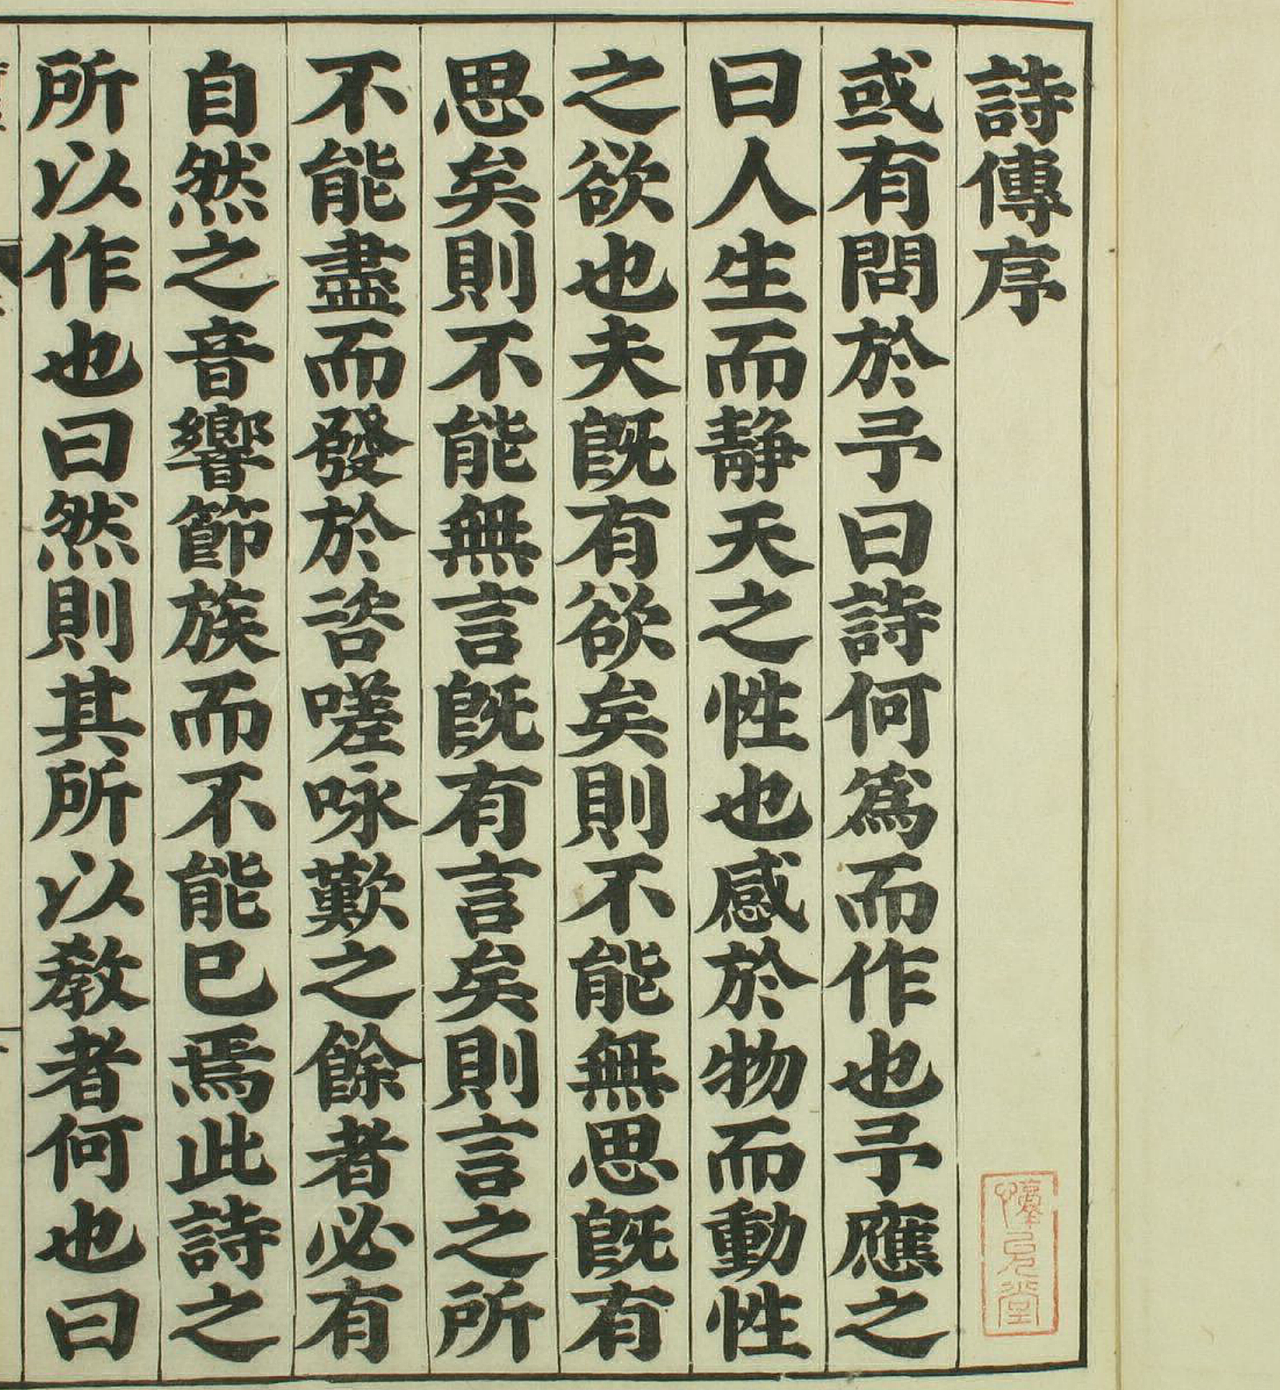 詩傳序
或有問於予曰詩何爲而作也予應之
曰人生而靜天之性也感於物而動性
之欲也夫既有欲矣則不能無思既有
思矣則不能無言既有言矣則言之所
不能盡而發於咨嗟咏歎之餘者必有
自然之音響節族而不能已焉此詩之
所以作也曰然則其所以教者何也曰